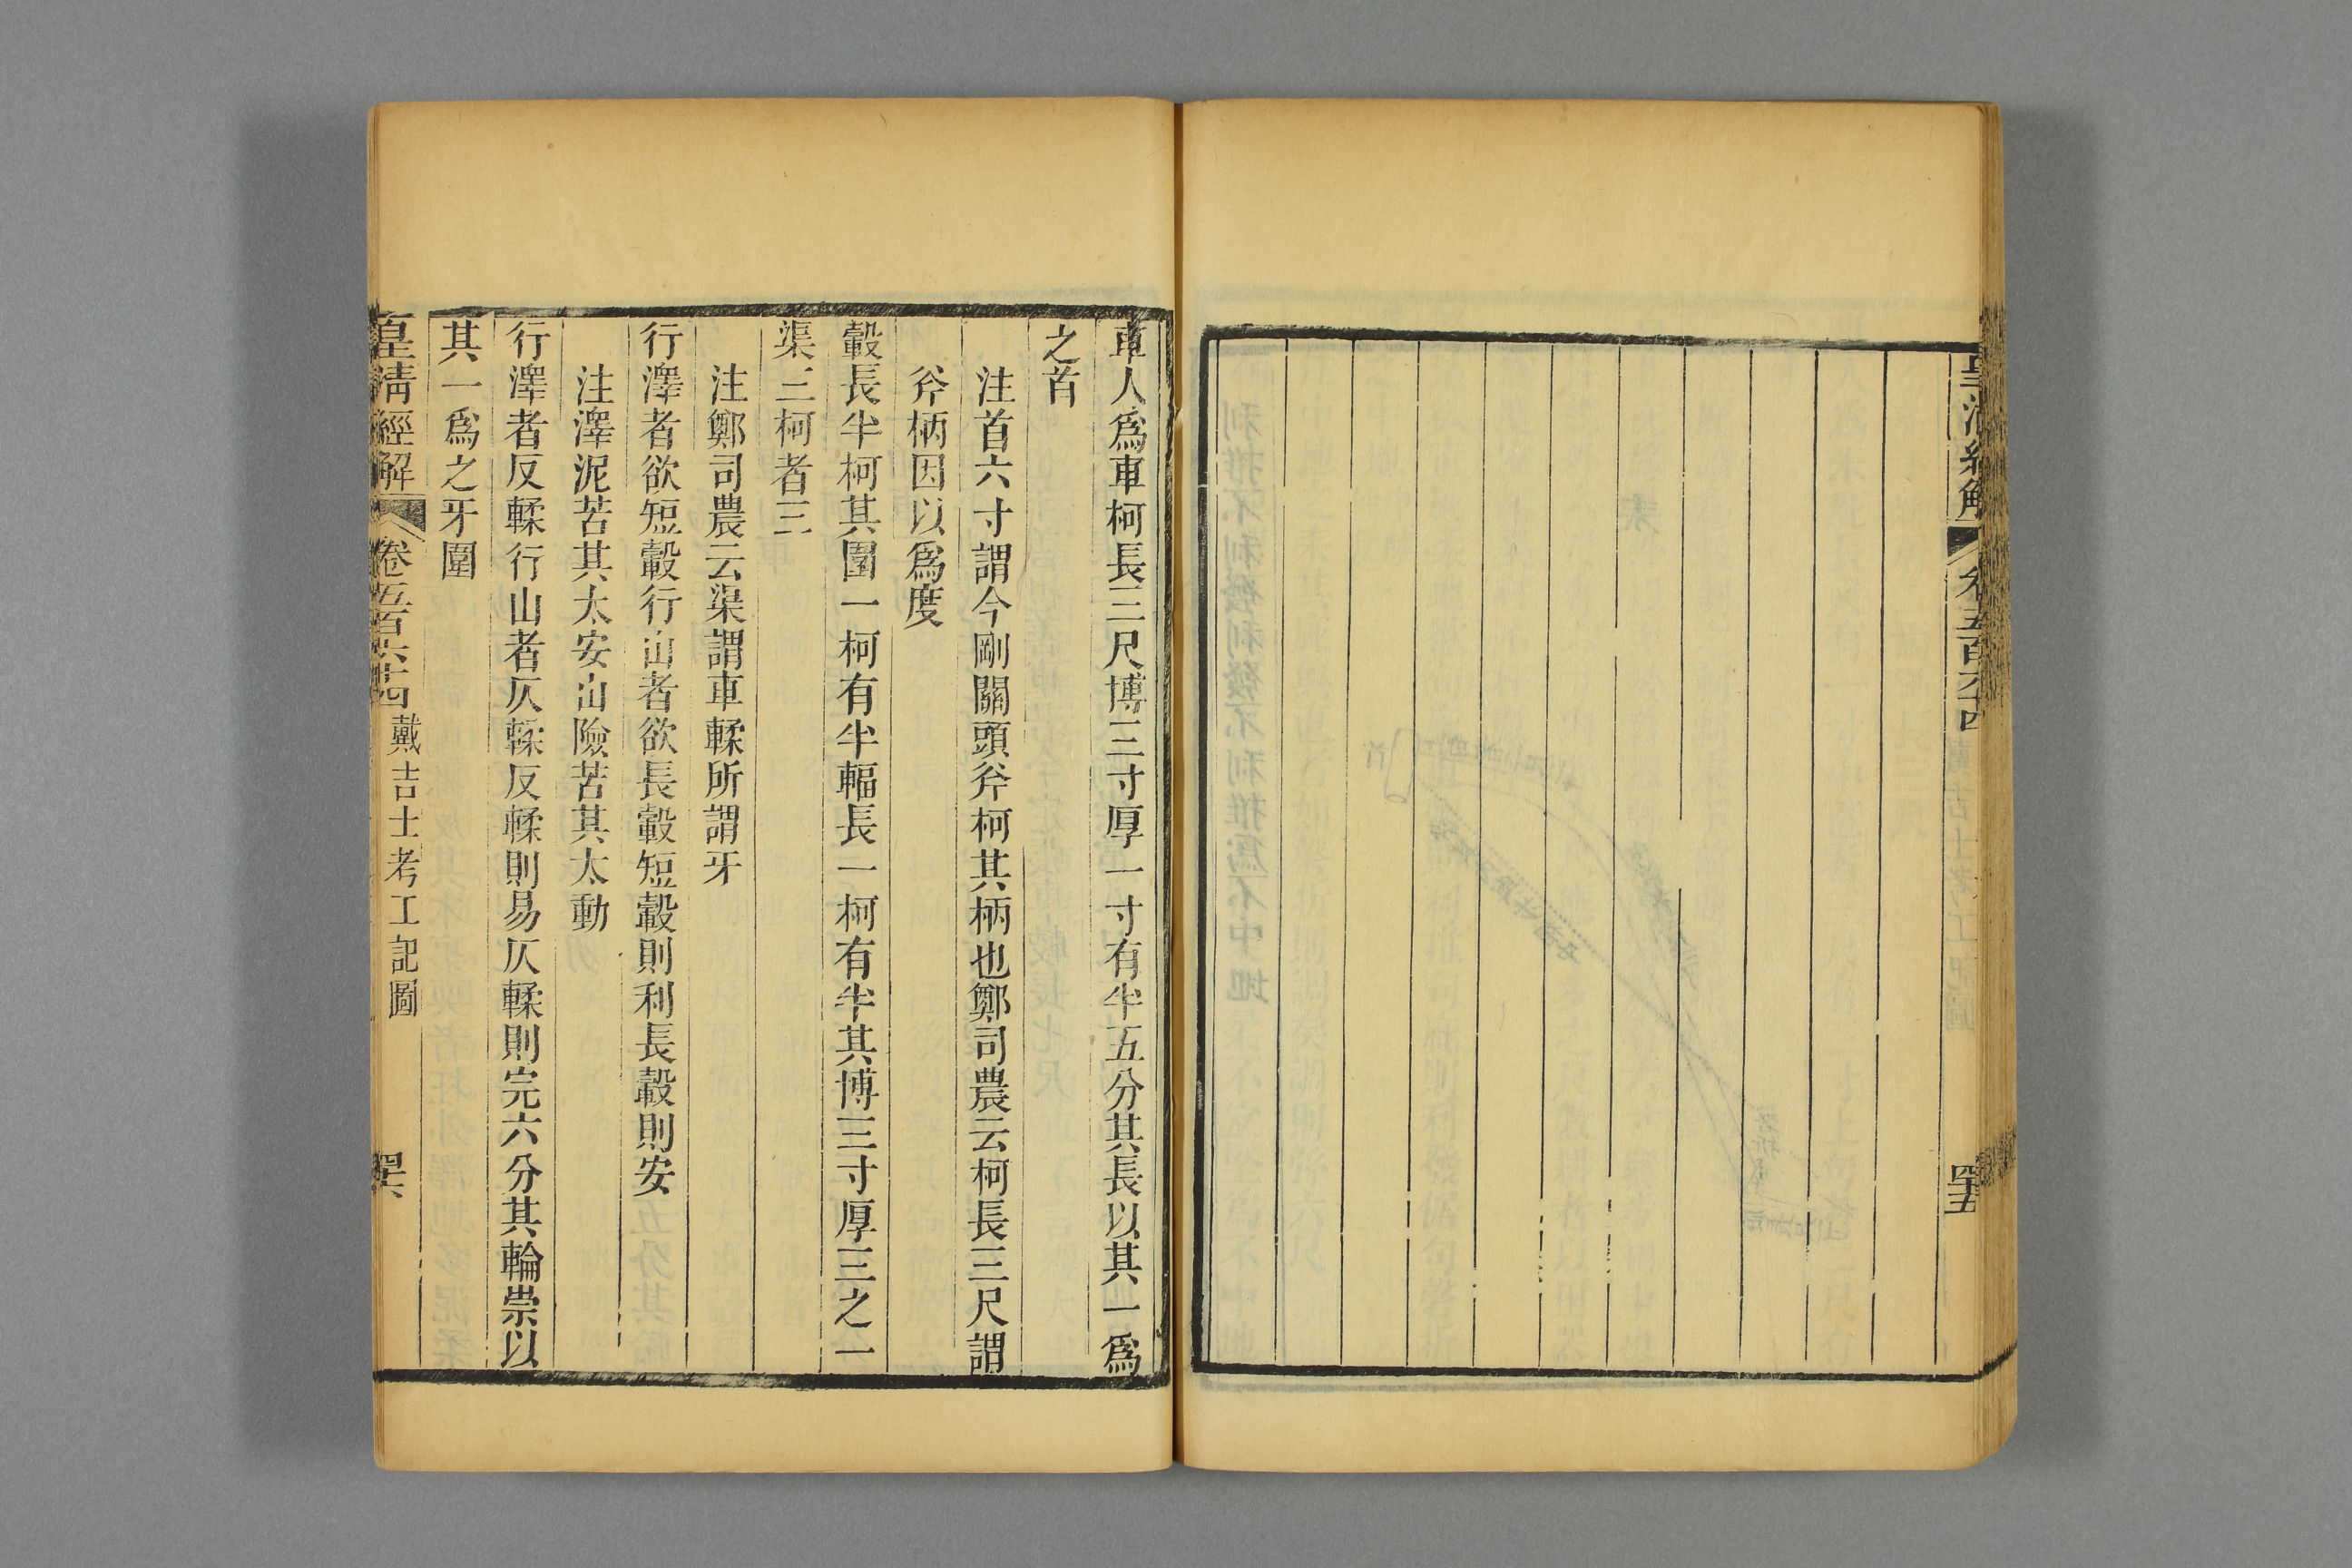 皇淸經解
卷五百六十四
四十五
車人爲車柯長三尺博三寸厚一寸有半五分其長以其一爲
之首
注首六寸謂今剛關頭斧柯其柄也鄭司農云柯長三尺謂
斧柄因以爲度
轂長半柯其圍一柯有半輻長一柯有半其博三寸厚三之一
渠三柯者三
注鄭司農云渠謂車輮所謂牙
行澤者欲短轂行山者欲長轂短轂則利長轂則安
注澤泥苦其太安山險苦其太動
行澤者反輮行山者仄輮反輮則易仄輮則完六分其輪崇以
其一爲之牙圍
皇淸經解
卷五百六十四
戴吉士考工記圖
四十六